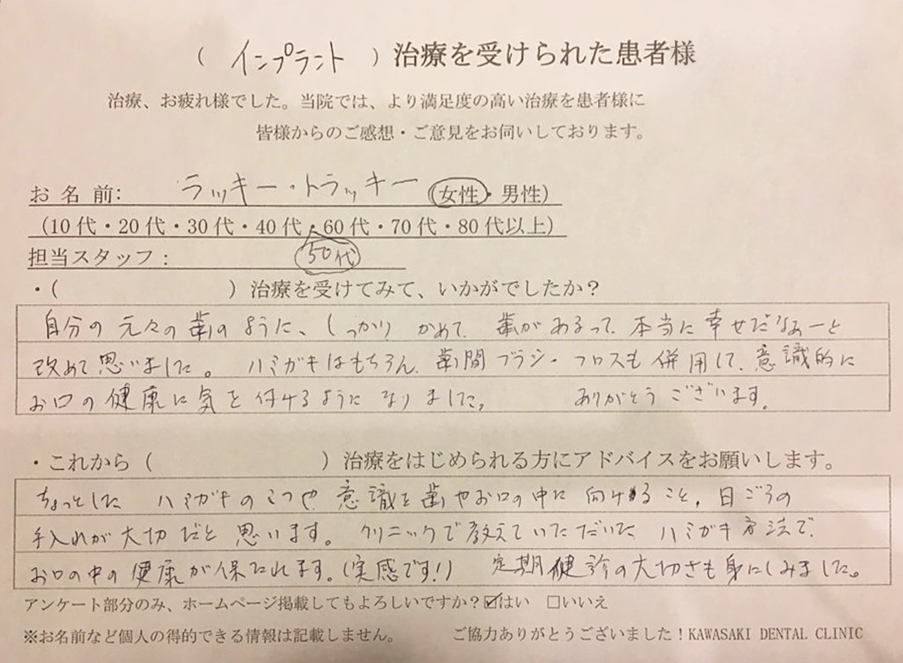 ( インプラント ) 治療を受けられた患者様
治療、お疲れ様でした。当院では、より満足度の高い治療を患者様に
皆様からのご感想・ご意見をお伺いしております。
お 名 前: ラッキー・トラッキー (女性・男性)
(10代・20代・30代・40代・60代・70代・80代以上)
担当スタッフ: 50代
・( ) 治療を受けてみて、いかがでしたか?
自分の元々の歯のように、しっかり かめて、歯があるって、本当に幸せだなぁーと
改めて思いました。ハミガキはもちろん、歯間ブラシ・フロスも併用して、意識的に
お口の健康に気を付けるようになりました。 ありがとうございます。
・これから ( ) 治療をはじめられる方にアドバイスをお願いします。
ちょっとした ハミガキのコツや 意識を歯やお口の中に向けること、日ごろの
手入れが大切だと思います。クリニックで教えていただいた ハミガキ方法で、
お口の中の健康が保たれます。(実感です!) 定期健診の大切さも身にしみました。
アンケート部分のみ、ホームページ掲載してもよろしいですか?☑はい □いいえ
※お名前など個人の得的できる情報は記載しません。 ご協力ありがとうございました!KAWASAKI DENTAL CLINIC